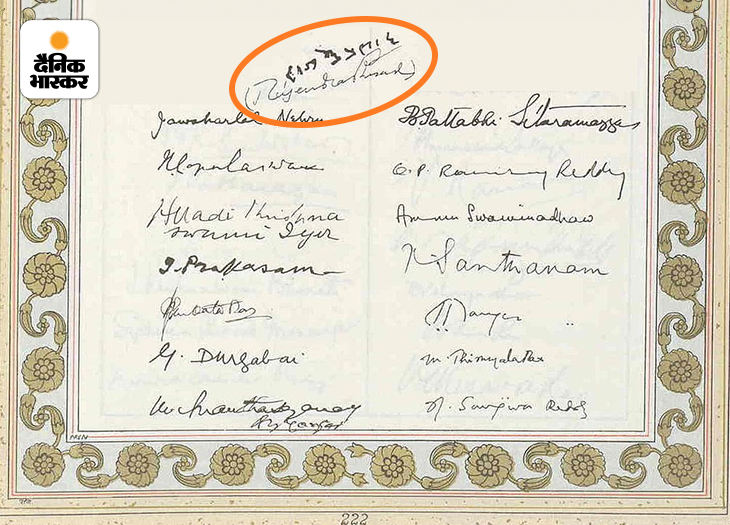 दैनिक
भास्कर
राजेन्द्र प्रसाद
(Rajendra Prasad)
Jawaharlal Nehru
B. Pattabhi Sitaramayya
N Gopalaswami
O. P. Ramaswamy Reddy
Alladi Krishna
Swami Iyer
Ammu Swaminadhan
T. Prakasam
K Santhanam
G. Durgabai
M. Thirumala Rao
N. Sanjiva Reddy
PREM
222